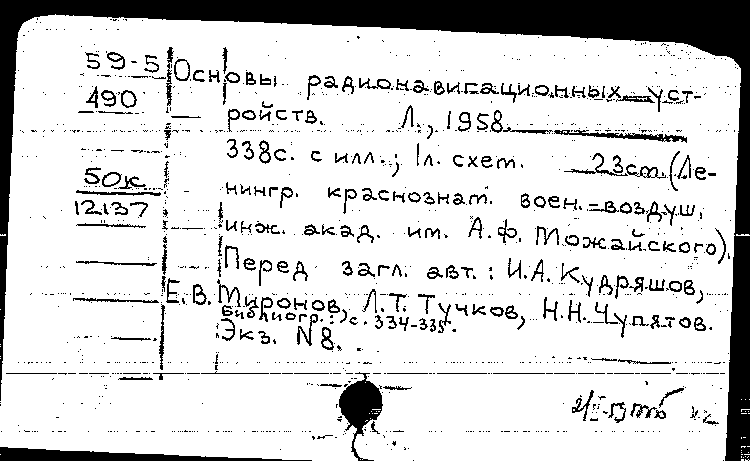 59-5 Основы радионавигационных уст-
490 ройств. Л., 1958.
338с. с илл.; 1л. схем. 23см. (Ле-
50к нингр. краснознам. воен.-воздуш.
12137 инж. акад. им. А.Ф. Можайского).
Перед загл. авт.: И.А. Кудряшов,
Е.В. Миронов, Л.Т. Тучков, Н.Н. Чупятов.
Библиогр.: с. 334-335.
Экз. N8.